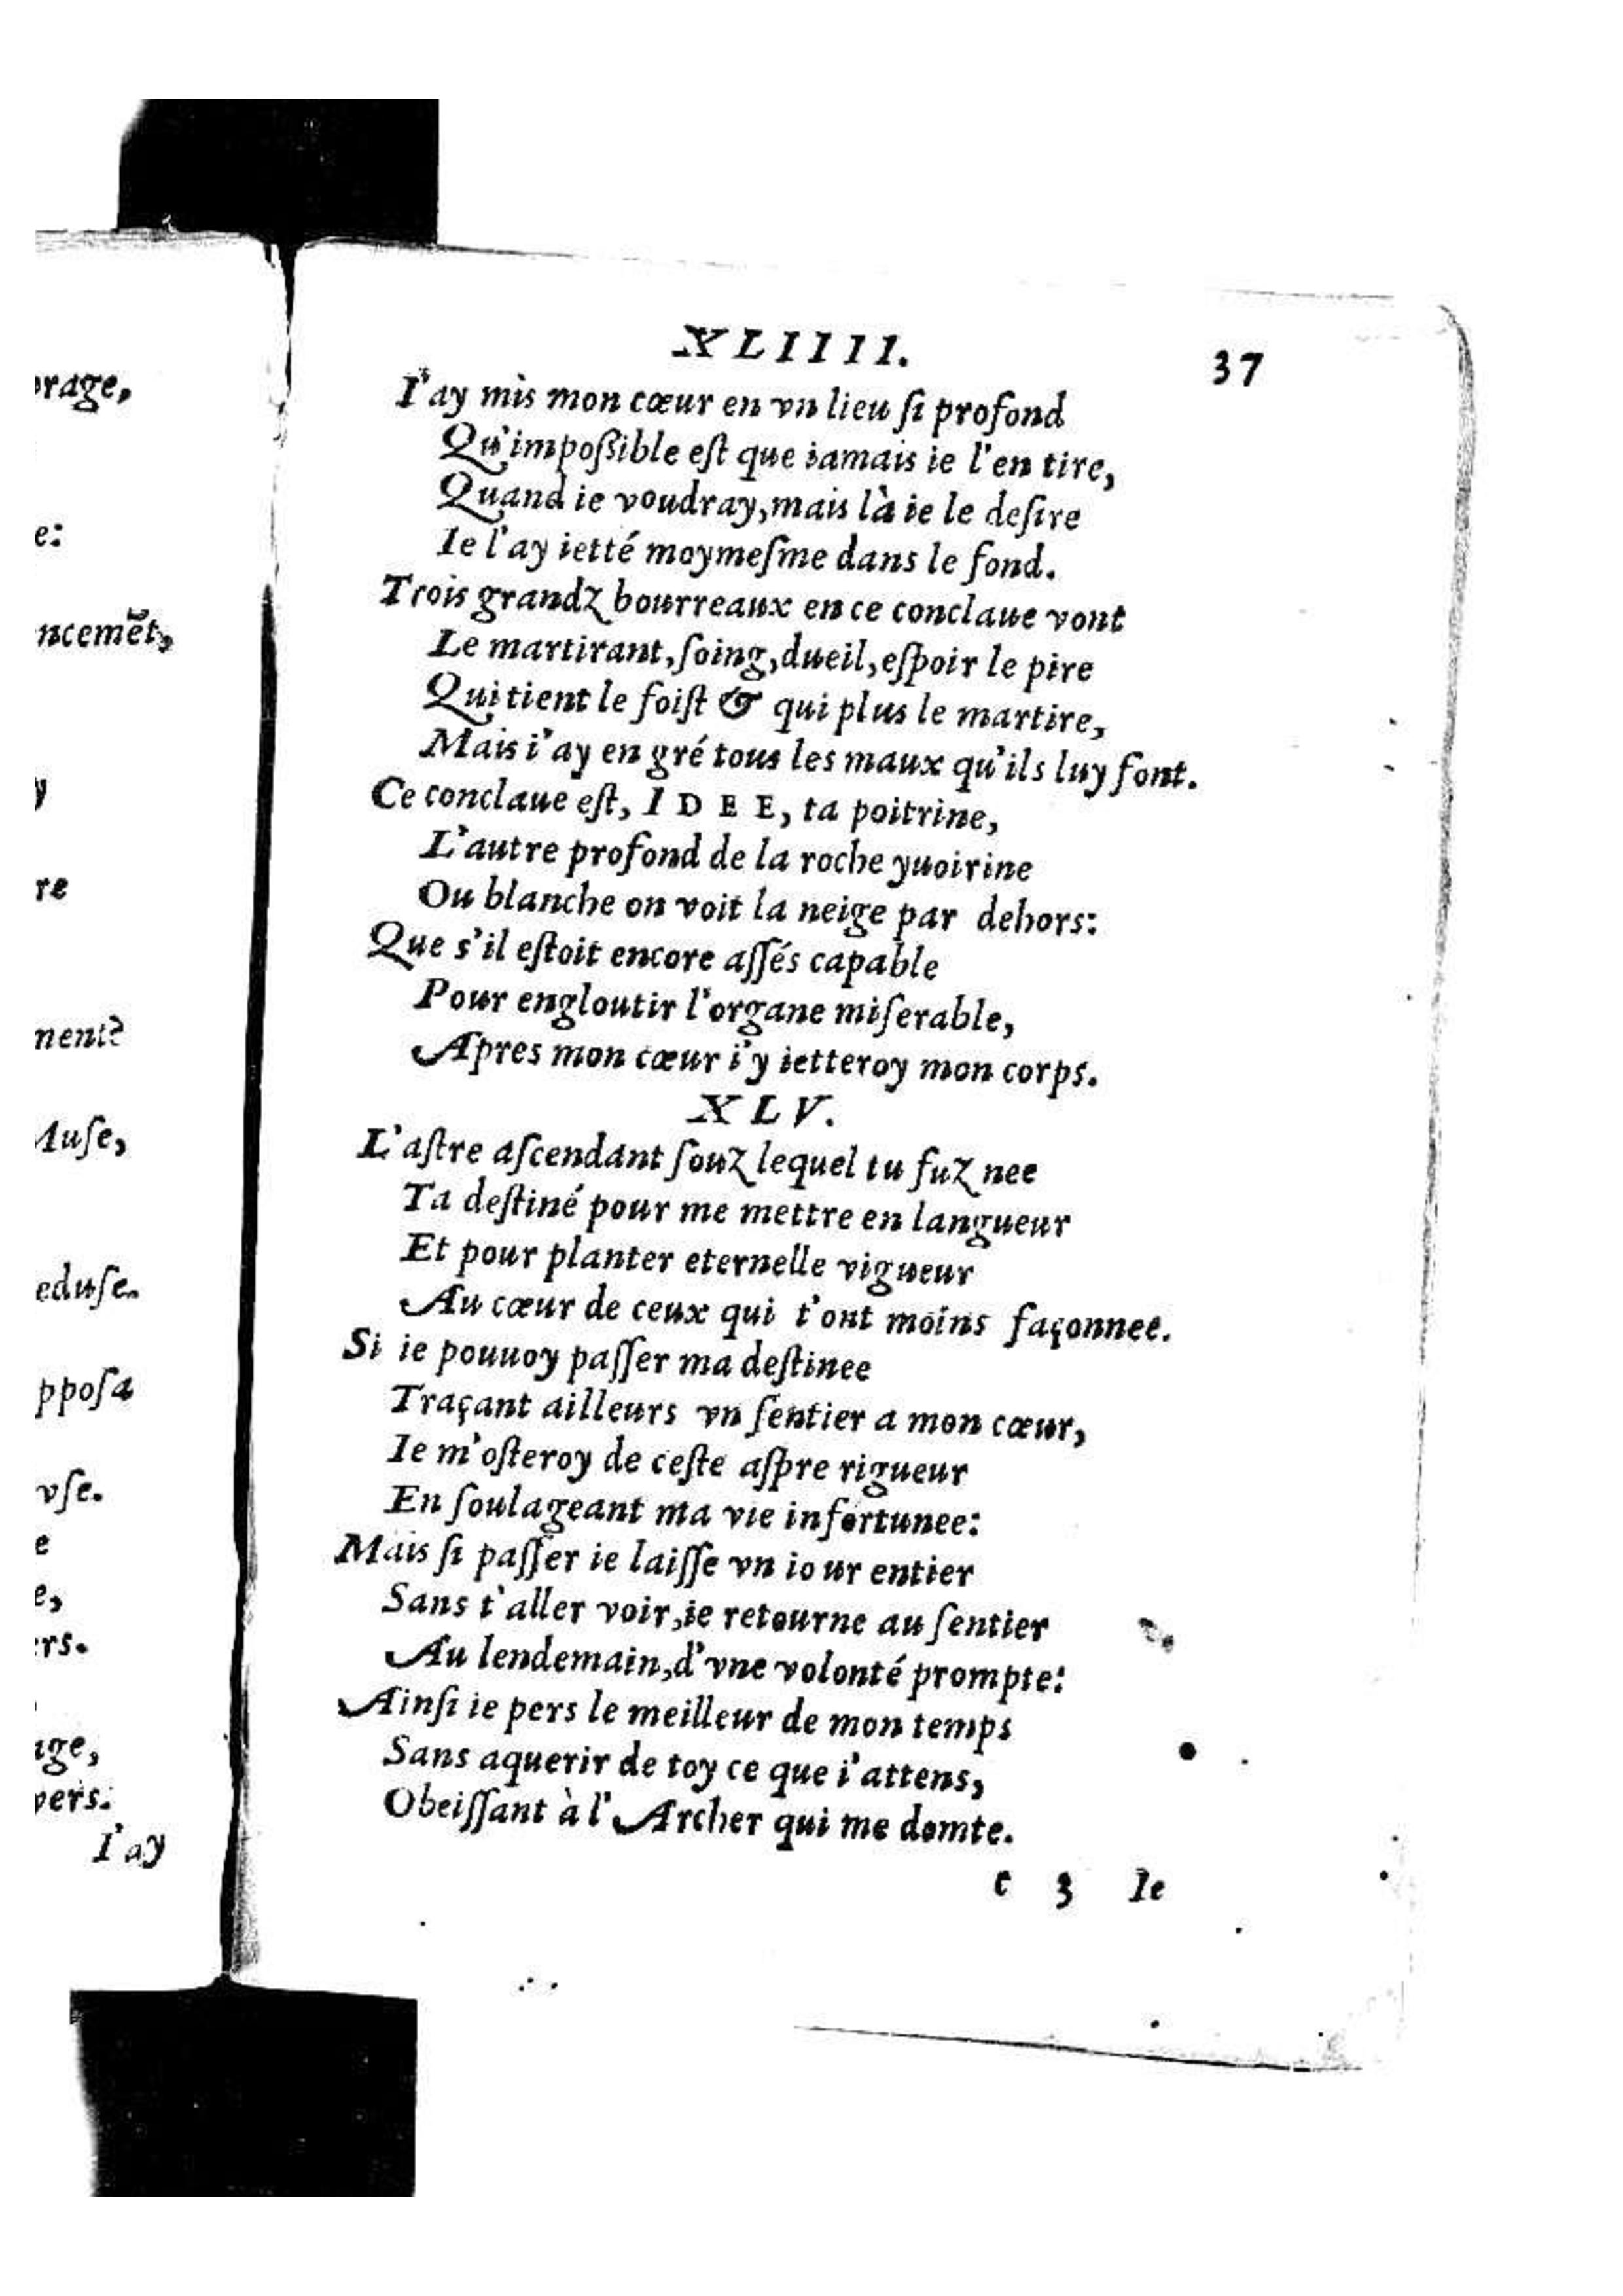 orage,
e:
ncemẽt,
y
re
ment?
Muse,
eduſe.
ppoſa
vſe.
e
e,
ers.
age,
vers.
I'ay
XLIIII.
37
I'ay mis mon cœur en vn lieu ſi profond
Qu'impoßible eſt que iamais ie l'en tire,
Quand ie voudray, mais là ie le deſire
Ie l'ay ietté moymeſme dans le fond.
Trois grandz bourreaux en ce conclaue vont
Le martirant, ſoing, dueil, eſpoir le pire
Qui tient le foiſt & qui plus le martire,
Mais i'ay en gré tous les maux qu'ils luy font.
Ce conclaue eſt, IDEE, ta poitrine,
L'autre profond de la roche yuoirine
Ou blanche on voit la neige par dehors:
Que s'il eſtoit encore aſſés capable
Pour engloutir l'organe miſerable,
Apres mon cœur i'y ietteroy mon corps.
XLV.
L'aſtre aſcendant ſouz lequel tu fuz nee
Ta deſtiné pour me mettre en langueur
Et pour planter eternelle vigueur
Au cœur de ceux qui t'ont moins façonnee.
Si ie pouuoy paſſer ma deſtinee
Traçant ailleurs vn ſentier a mon cœur,
Ie m'oſteroy de ceſte aſpre rigueur
En ſoulageant ma vie infortunee:
Mais ſi paſſer ie laiſſe vn iour entier
Sans t'aller voir, ie retourne au ſentier
Au lendemain, d'vne volonté prompte:
Ainſi ie pers le meilleur de mon temps
Sans aquerir de toy ce que i'attens,
Obeiſſant à l'Archer qui me domte.
c 3 Ie